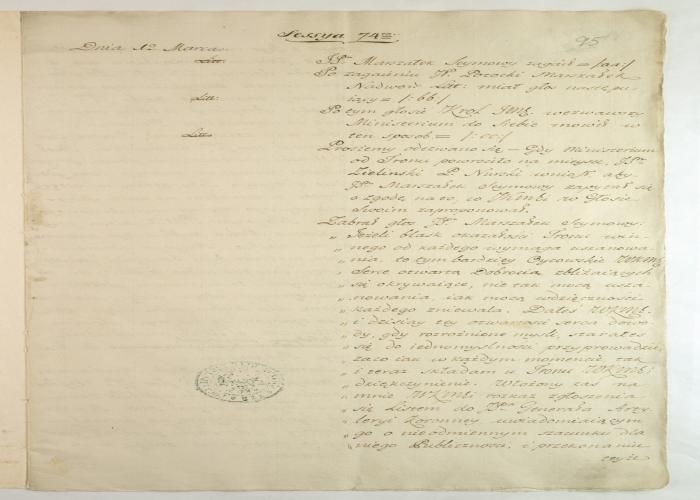 Sessya 74ta
95
Dnia 1o Marca.
JP. Marszałek Seymowy zagaił = /:aa:/
Litt:
Po zagaieniu JP. Potocki Marszałek
Nadworny Litt: miał głos nastę pu:
Litt:
iący = /:bb:/
Po tym głosie Krol JMć wezwawszy
Ministerium do siebie mowił w
Litt:
ten sposob = /:cc:/
Prosiemy odezwano się – Gdy Ministerium
od Tronu powrociło na mieysce, JP.
Zieliński P. Nurski wniosł, aby
JP. Marszałek Seymowy zapytał się
o zgodę na to, co w Głosie
Swoim zaproponował.
Zabrał głos JP. Marszałek Seymowy.
„ Jeżeli blask okazałości Tronu
„ nego od każdego wymaga uszanowa-
„ nia, to tym bardziey Oycowskie WKMć
„ Serce otwartą Dobrocią zbliżaiących
„ się okrywaiące, nie tak mocą usza-
„ nowania, iak mocą wdzięczności
„ każdego zniewala. Dałeś WKMć
„ i dzisiay tey otwartości serca dowo-
„ dy, gdy rozrożnione mysli starałeś
„ się do iednomyslności przyprowadzić,
„ za co iak w każdym momencie, tak
„ i teraz składam u Tronu WKMci
„ dziękczynienie. Włożony zaś na
„ mnie WKMci rozkaz zgłoszenia
„ się Listem do Generała Arty-
„ leryi Koronney uwiadomiaiącym
„ go o nieodmiennym szacunku dla
„ niego Publiczności, i przekonanie